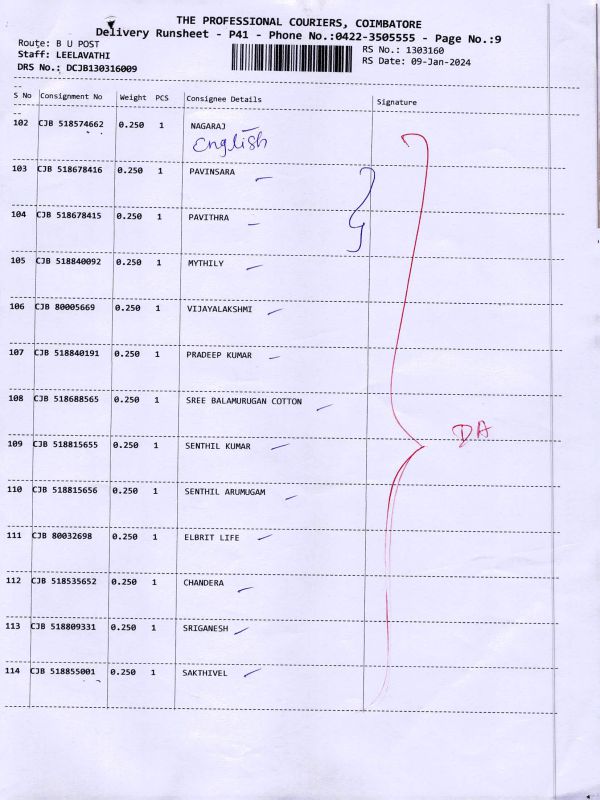 THE PROFESSIONAL COURIERS, COIMBATORE
Delivery Runsheet - P41 - Phone No.:0422-3505555 - Page No.:9
Route: B U POST
RS No.: 1303160
Staff: LEELAVATHI
RS Date: 09-Jan-2024
DRS No.: DCJB130316009
S No Consignment No Weight PCS Consignee Details Signature
102 CJB 518574662 0.250 1 NAGARAJ
English
103 CJB 518678416 0.250 1 PAVINSARA
104 CJB 518678415 0.250 1 PAVITHRA
105 CJB 518840092 0.250 1 MYTHILY
106 CJB 80005669 0.250 1 VIJAYALAKSHMI
107 CJB 518840191 0.250 1 PRADEEP KUMAR
108 CJB 518688565 0.250 1 SREE BALAMURUGAN COTTON
DA
109 CJB 518815655 0.250 1 SENTHIL KUMAR
110 CJB 518815656 0.250 1 SENTHIL ARUMUGAM
111 CJB 80032698 0.250 1 ELBRIT LIFE
112 CJB 518535652 0.250 1 CHANDERA
113 CJB 518809331 0.250 1 SRIGANESH
114 CJB 518855001 0.250 1 SAKTHIVEL